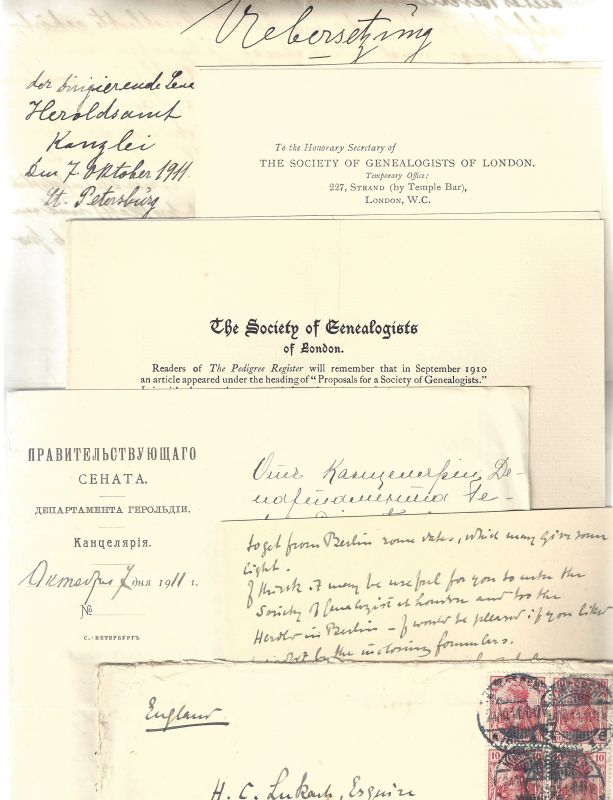 Uebersetzung
der dirigierende Sena
Heroldsamt
Kanzlei
den 7. Oktober 1911.
St. Petersburg
To the Honorary Secretary of
THE SOCIETY OF GENEALOGISTS OF LONDON.
Temporary Office:
227, STRAND (by Temple Bar),
LONDON, W.C.
The Society of Genealogists
of London.
Readers of The Pedigree Register will remember that in September 1910
an article appeared under the heading of "Proposals for a Society of Genealogists."
ПРАВИТЕЛЬСТВУЮЩАГО
СЕНАТА.
ДЕПАРТАМЕНТА ГЕРОЛЬДІИ.
Канцелярія.
Октября 7 дня 1911 г.
№
С.-ПЕТЕРБУРГЪ
Отъ Канцеляріи Де-
партамента Ге-
to get from Berlin some dates, which may give some
light.
I think it may be useful for you to enter the
Society of Genealogist at London and too the
Herold in Berlin – I would be pleased if you liked
by the inclosing formulars.
England
H. C. Lukach, Esquire
10
10